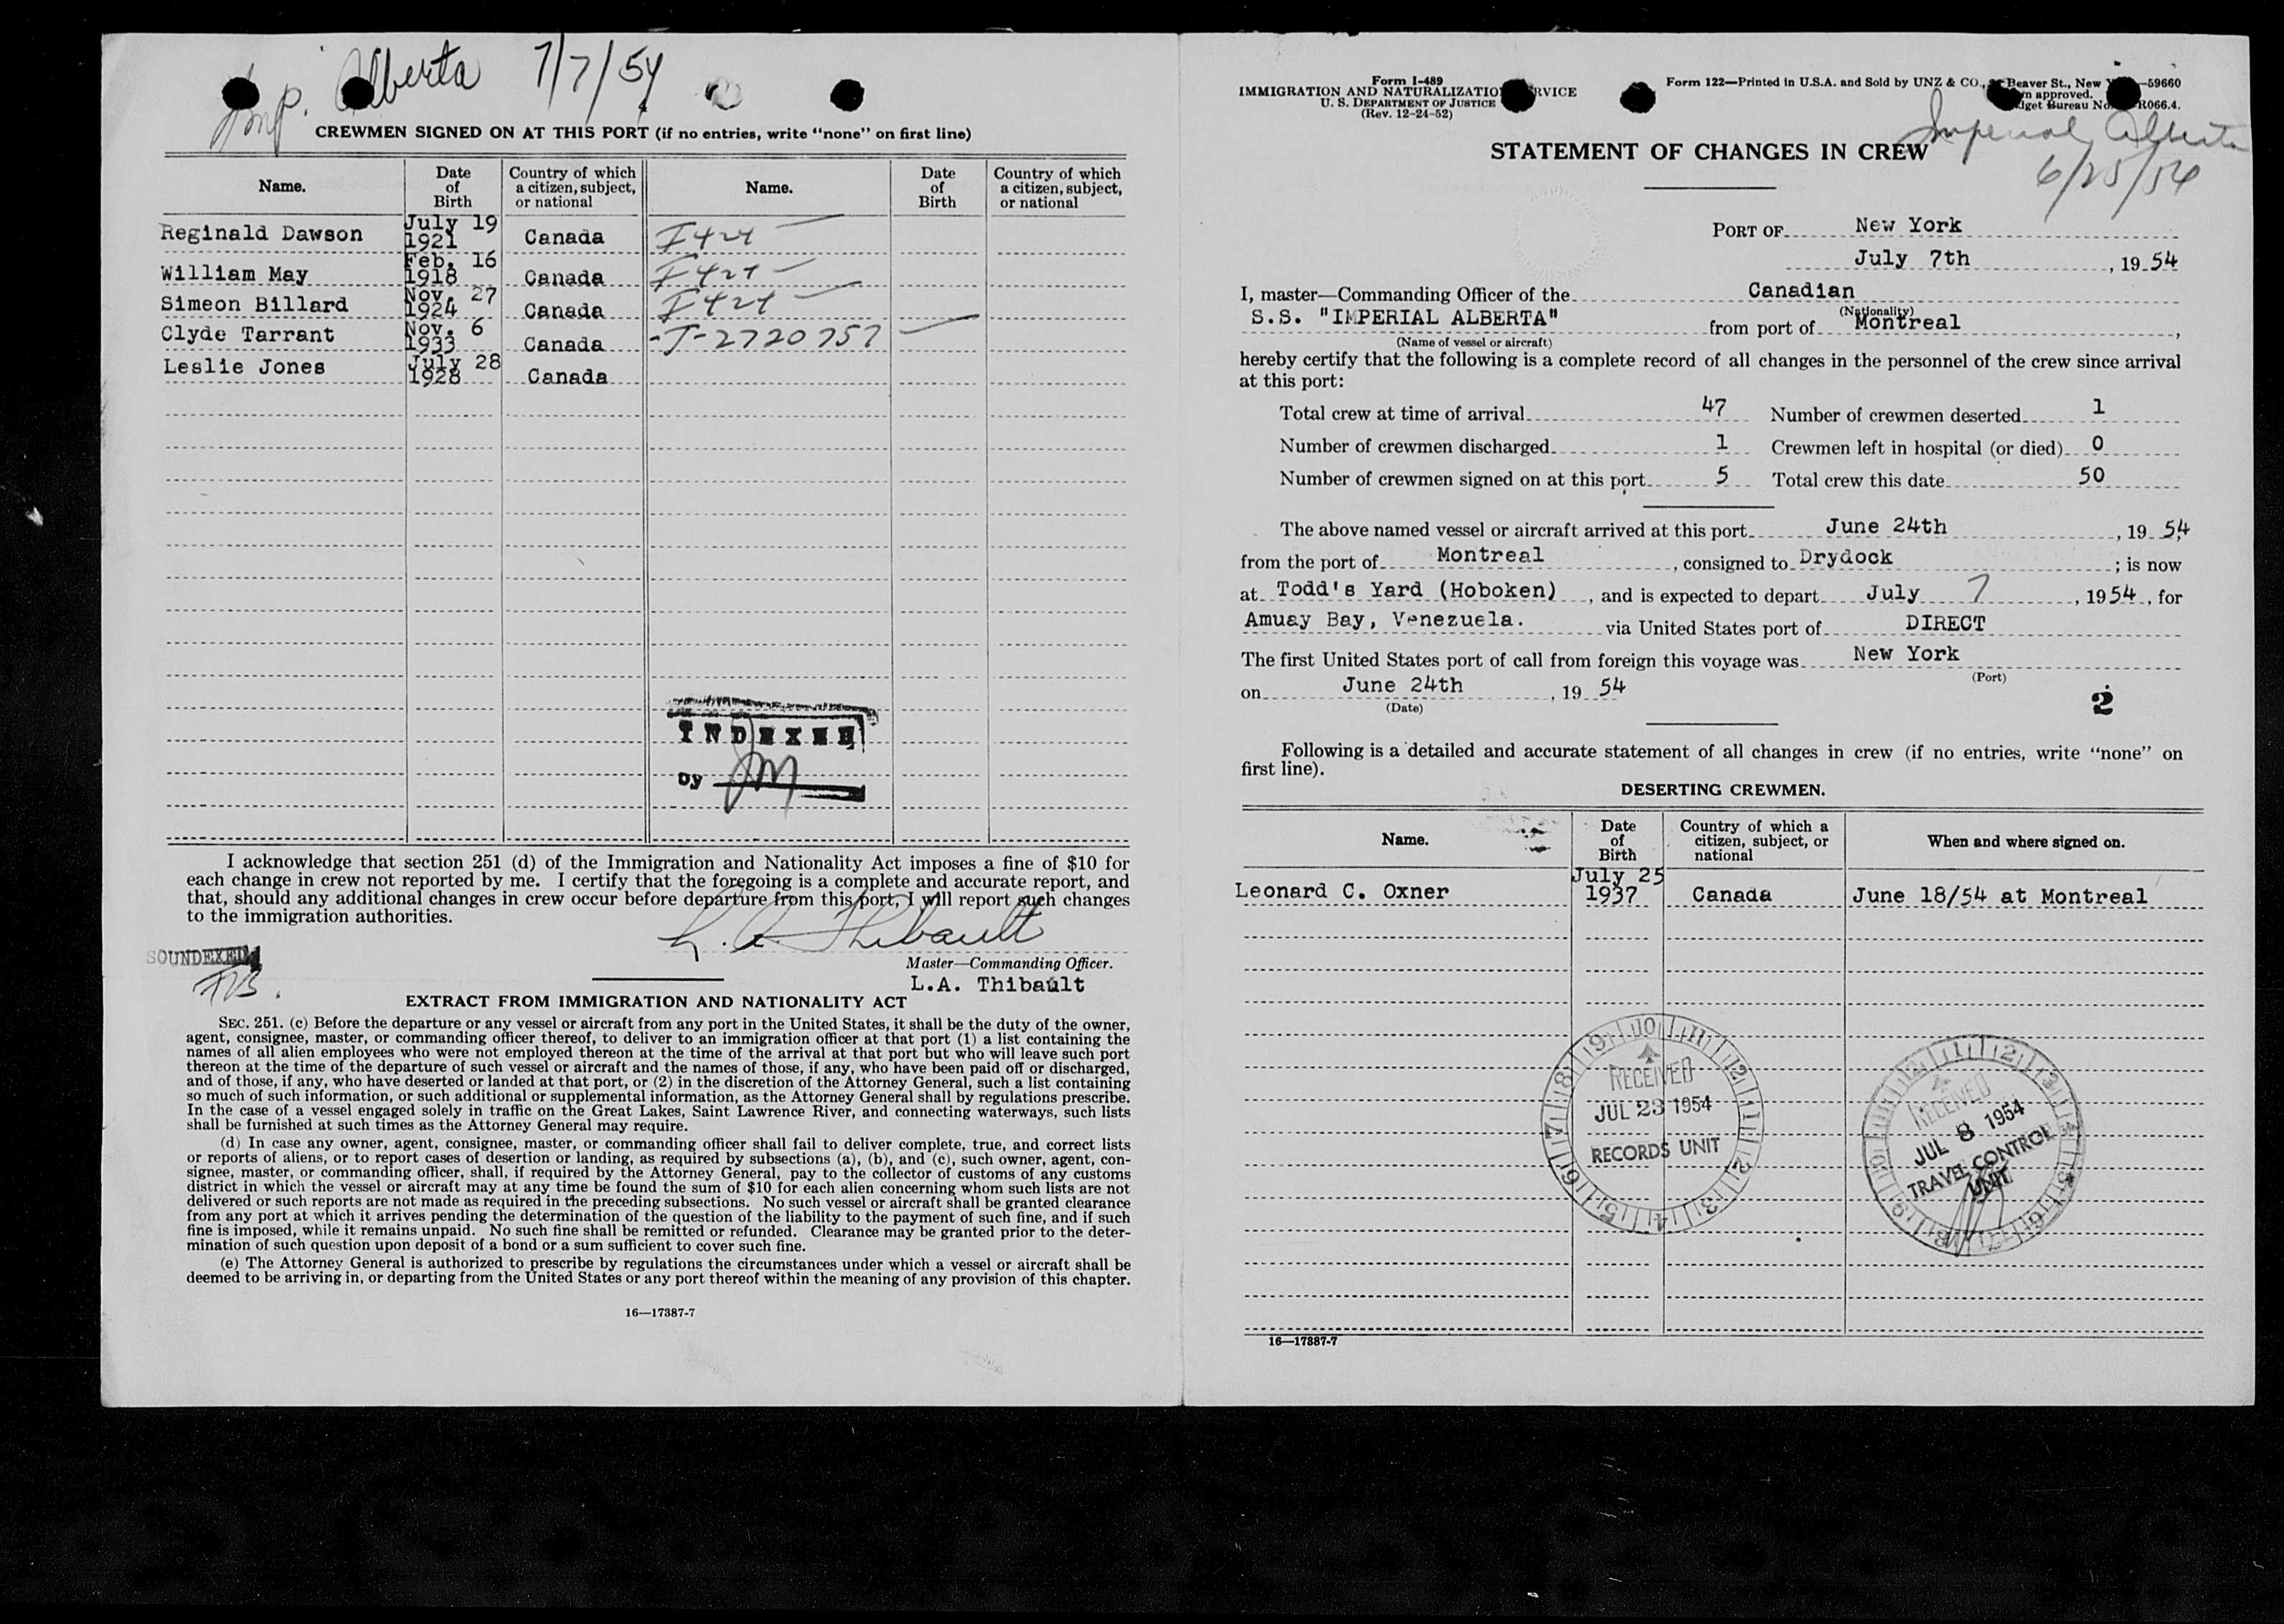 Imp. Alberta 7/7/54
CREWMEN SIGNED ON AT THIS PORT (if no entries, write "none" on first line)
Name. Date of Birth Country of which a citizen, subject, or national Name. Date of Birth Country of which a citizen, subject, or national
Reginald Dawson July 19 1921 Canada I424
William May Feb. 16 1918 Canada I424
Simeon Billard Nov. 27 1924 Canada I424
Clyde Tarrant Nov. 6 1933 Canada -J-2720757
Leslie Jones July 28 1928 Canada
INDEXED
by JM
I acknowledge that section 251 (d) of the Immigration and Nationality Act imposes a fine of $10 for
each change in crew not reported by me. I certify that the foregoing is a complete and accurate report, and
that, should any additional changes in crew occur before departure from this port, I will report such changes
to the immigration authorities.
L. A. Thibault
SOUNDEXED
Master—Commanding Officer.
L.A. Thibault
EXTRACT FROM IMMIGRATION AND NATIONALITY ACT
SEC. 251. (c) Before the departure or any vessel or aircraft from any port in the United States, it shall be the duty of the owner,
agent, consignee, master, or commanding officer thereof, to deliver to an immigration officer at that port (1) a list containing the
names of all alien employees who were not employed thereon at the time of the arrival at that port but who will leave such port
thereon at the time of the departure of such vessel or aircraft and the names of those, if any, who have been paid off or discharged,
and of those, if any, who have deserted or landed at that port, or (2) in the discretion of the Attorney General, such a list containing
so much of such information, or such additional or supplemental information, as the Attorney General shall by regulations prescribe.
In the case of a vessel engaged solely in traffic on the Great Lakes, Saint Lawrence River, and connecting waterways, such lists
shall be furnished at such times as the Attorney General may require.
(d) In case any owner, agent, consignee, master, or commanding officer shall fail to deliver complete, true, and correct lists
or reports of aliens, or to report cases of desertion or landing, as required by subsections (a), (b), and (c), such owner, agent, con-
signee, master, or commanding officer, shall, if required by the Attorney General, pay to the collector of customs of any customs
district in which the vessel or aircraft may at any time be found the sum of $10 for each alien concerning whom such lists are not
delivered or such reports are not made as required in the preceding subsections. No such vessel or aircraft shall be granted clearance
from any port at which it arrives pending the determination of the question of the liability to the payment of such fine, and if such
fine is imposed, while it remains unpaid. No such fine shall be remitted or refunded. Clearance may be granted prior to the deter-
mination of such question upon deposit of a bond or a sum sufficient to cover such fine.
(e) The Attorney General is authorized to prescribe by regulations the circumstances under which a vessel or aircraft shall be
deemed to be arriving in, or departing from the United States or any port thereof within the meaning of any provision of this chapter.
16—17387-7
Form I-489
IMMIGRATION AND NATURALIZATIO RVICE
U. S. DEPARTMENT OF JUSTICE
(Rev. 12-24-52)
Form 122—Printed in U.S.A. and Sold by UNZ & CO., Beaver St., New —59660
approved.
Bureau No. R066.4.
Imperial Alberta
6/25/54
STATEMENT OF CHANGES IN CREW
PORT OF New York
July 7th, 1954
I, master—Commanding Officer of the Canadian
(Nationality)
S.S. "IMPERIAL ALBERTA" from port of Montreal,
(Name of vessel or aircraft)
hereby certify that the following is a complete record of all changes in the personnel of the crew since arrival
at this port:
Total crew at time of arrival 47 Number of crewmen deserted 1
Number of crewmen discharged 1 Crewmen left in hospital (or died) 0
Number of crewmen signed on at this port 5 Total crew this date 50
The above named vessel or aircraft arrived at this port June 24th, 1954
from the port of Montreal, consigned to Drydock; is now
at Todd's Yard (Hoboken), and is expected to depart July 7, 1954, for
Amuay Bay, Venezuela. via United States port of DIRECT
The first United States port of call from foreign this voyage was New York
(Port)
on June 24th, 19 54
(Date)
2
Following is a detailed and accurate statement of all changes in crew (if no entries, write "none" on
first line).
DESERTING CREWMEN.
Name. Date of Birth Country of which a citizen, subject, or national When and where signed on.
Leonard C. Oxner July 25 1937 Canada June 18/54 at Montreal
RECEIVED
JUL 23 1954
RECORDS UNIT
RECEIVED
JUL 8 1954
TRAVEL CONTROL
UNIT
16—17387-7